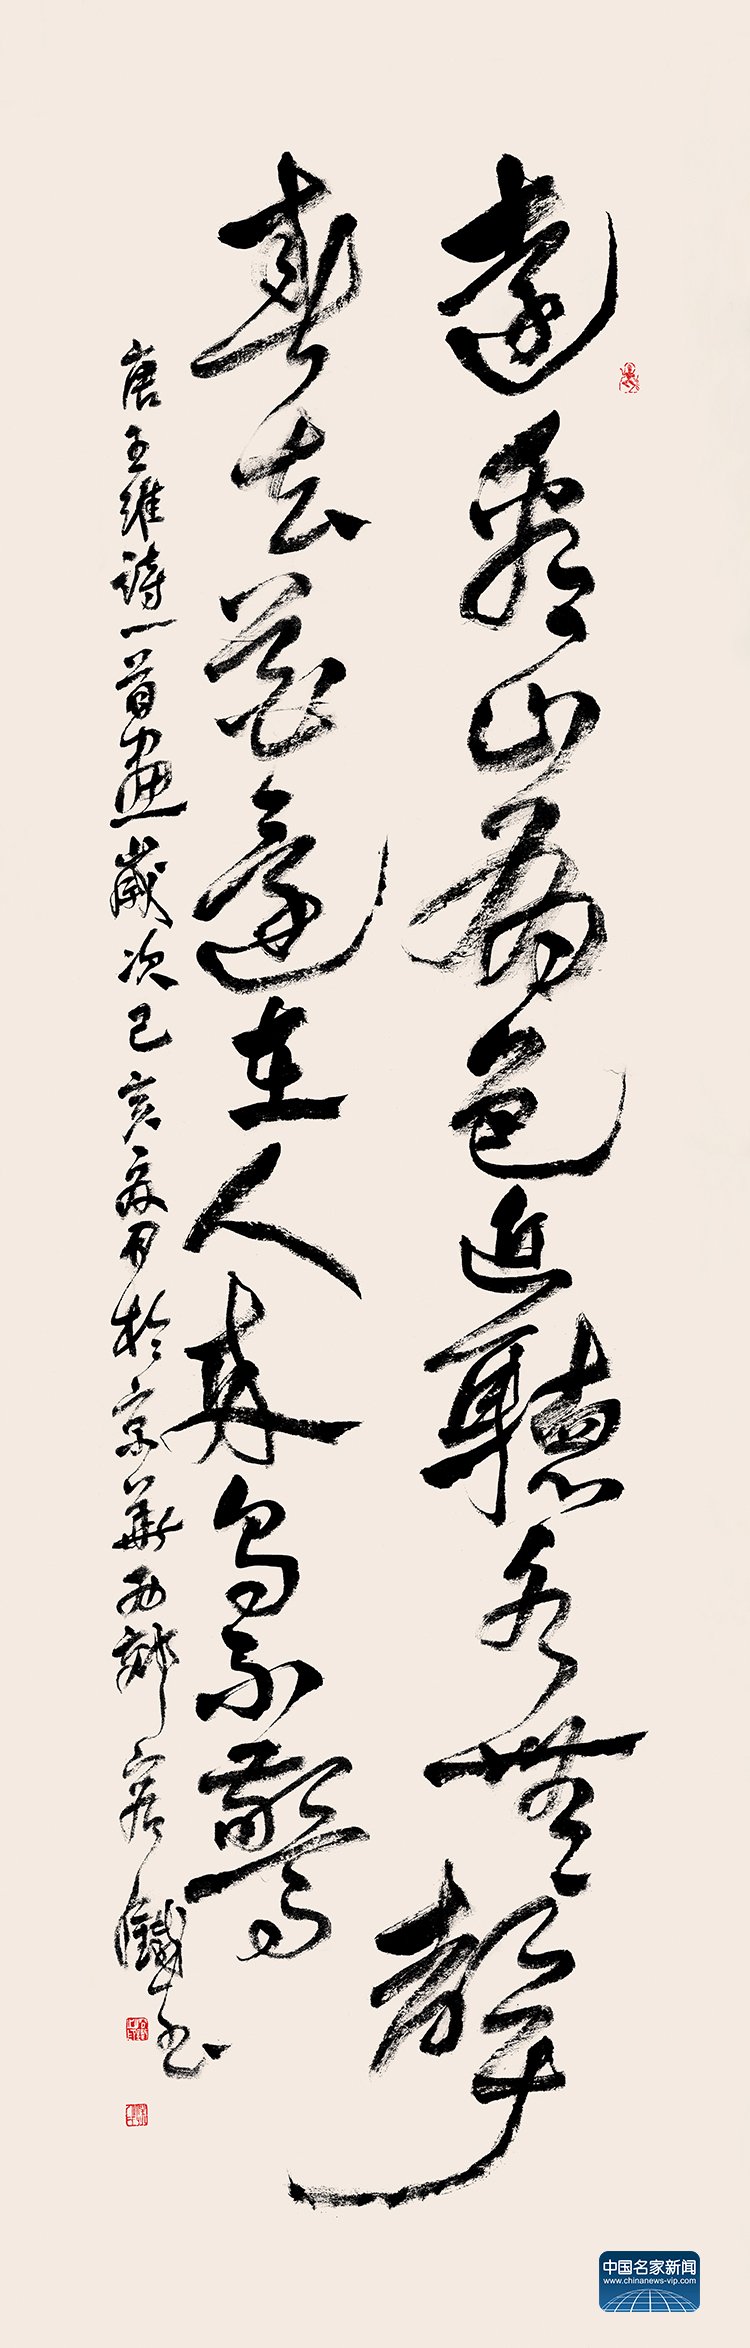 遠看山有色近聽水無聲
春去花還在人來鳥不驚
唐王維詩一首畫歲次己亥夏月於京華西郊鐵
中国名家新闻
www.chinanews-vip.com